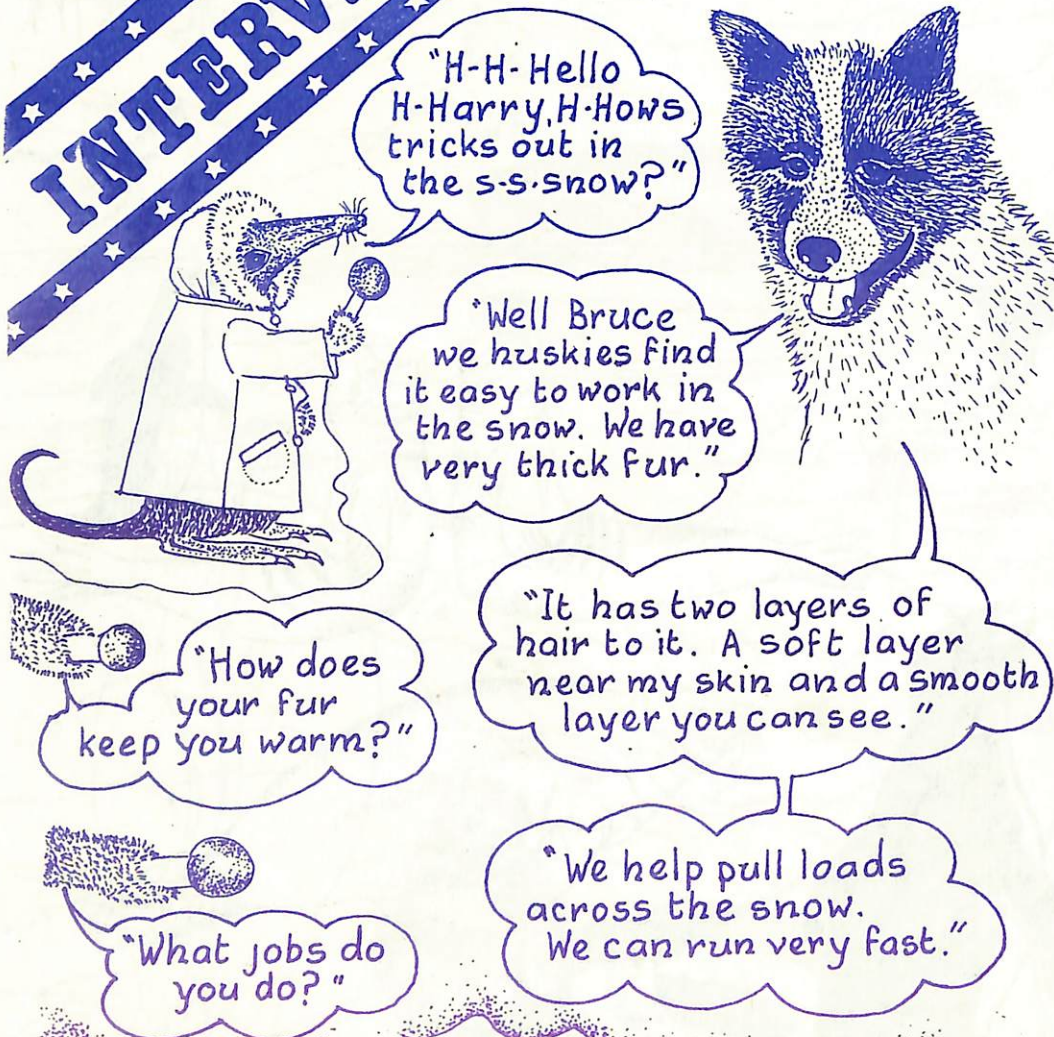 "H-H-Hello
H-Harry, H-Hows
tricks out in
the s-s-snow?"
"Well Bruce
we huskies find
it easy to work in
the snow. We have
very thick fur."
"How does
your fur
keep you warm?"
"It has two layers of
hair to it. A soft layer
near my skin and a smooth
layer you can see."
"What jobs do
you do?"
"We help pull loads
across the snow.
We can run very fast."